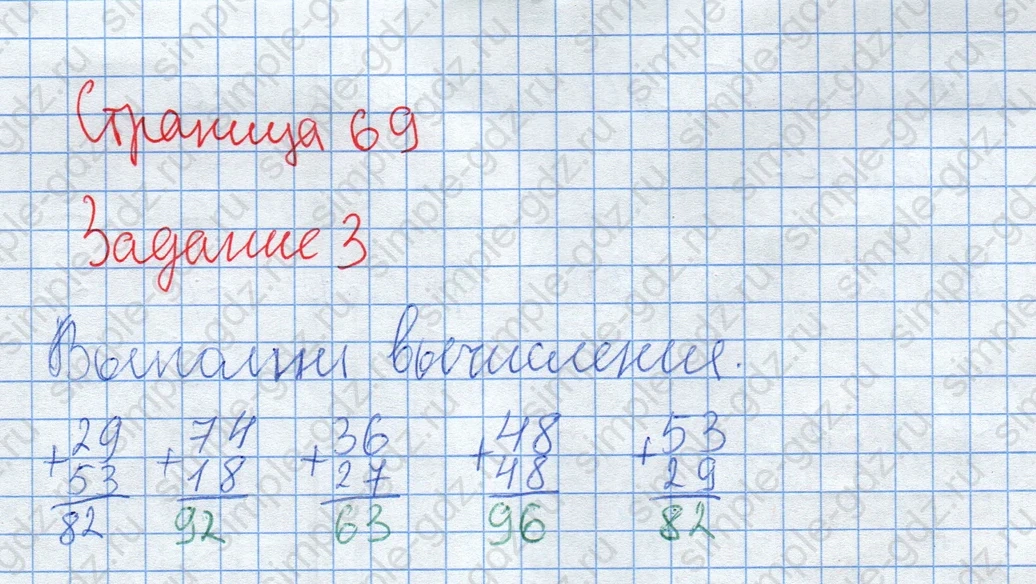 Страница 69
Задание 3
Выполни вычисления.
+29 +74 +36 +48 +53
53 18 27 48 29
82 92 63 96 82
simple-gdz.ru